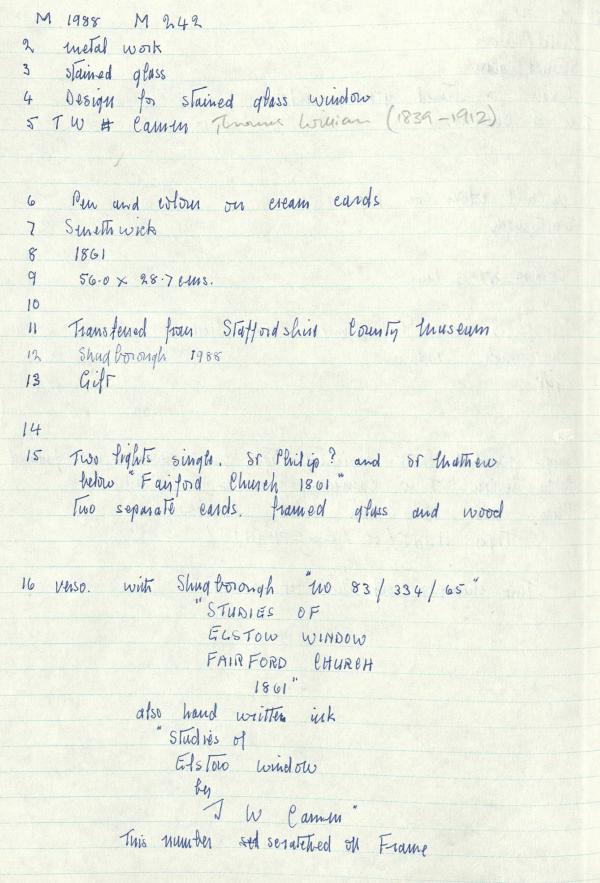 M 1988 M 242
2 metal work
3 stained glass
4 Design for stained glass window
5 T W Camm Thomas William (1839-1912)
6 Pen and colour on cream cards
7 Smethwick
8 1861
9 56.0 x 28.7 cms.
10
11 Transferred from Staffordshire County Museum
12 Shugborough 1988
13 Gift
14
15 Two lights single. St Philip? and St Matthew
below "Fairford Church 1861"
Two separate cards. framed glass and wood
16 verso. with Shugborough "no 83/334/65"
"STUDIES OF
ELSTOW WINDOW
FAIRFORD CHURCH
1861"
also hand written ink
"Studies of
Elstow window
by
T W Camm"
This number scratched on Frame